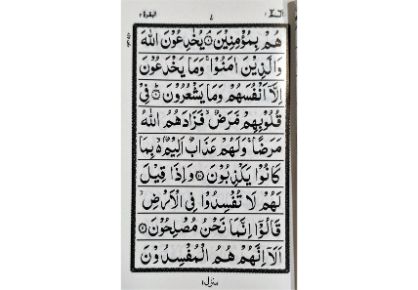 البقرة ٢
٤
الم ١
هُمْ بِمُؤْمِنِيْنَ ۘ﴿۸﴾ يُخٰدِعُوْنَ اللّٰهَ
وَالَّذِيْنَ اٰمَنُوْا ۚ وَمَا يَخْدَعُوْنَ
اِلَّاۤ اَنْفُسَهُمْ وَمَا يَشْعُرُوْنَ ؕ﴿۹﴾ فِيْ
قُلُوْبِهِمْ مَّرَضٌ ۙ فَزَادَهُمُ اللّٰهُ
مَرَضًا ۚ وَلَهُمْ عَذَابٌ اَلِيْمٌۢ ۙ۬ بِمَا
كَانُوْا يَكْذِبُوْنَ ﴿۱۰﴾ وَاِذَا قِيْلَ
لَهُمْ لَا تُفْسِدُوْا فِي الْاَرْضِ ۙ
قَالُوْۤا اِنَّمَا نَحْنُ مُصْلِحُوْنَ ﴿۱۱﴾
اَلَاۤ اِنَّهُمْ هُمُ الْمُفْسِدُوْنَ
منزل ١